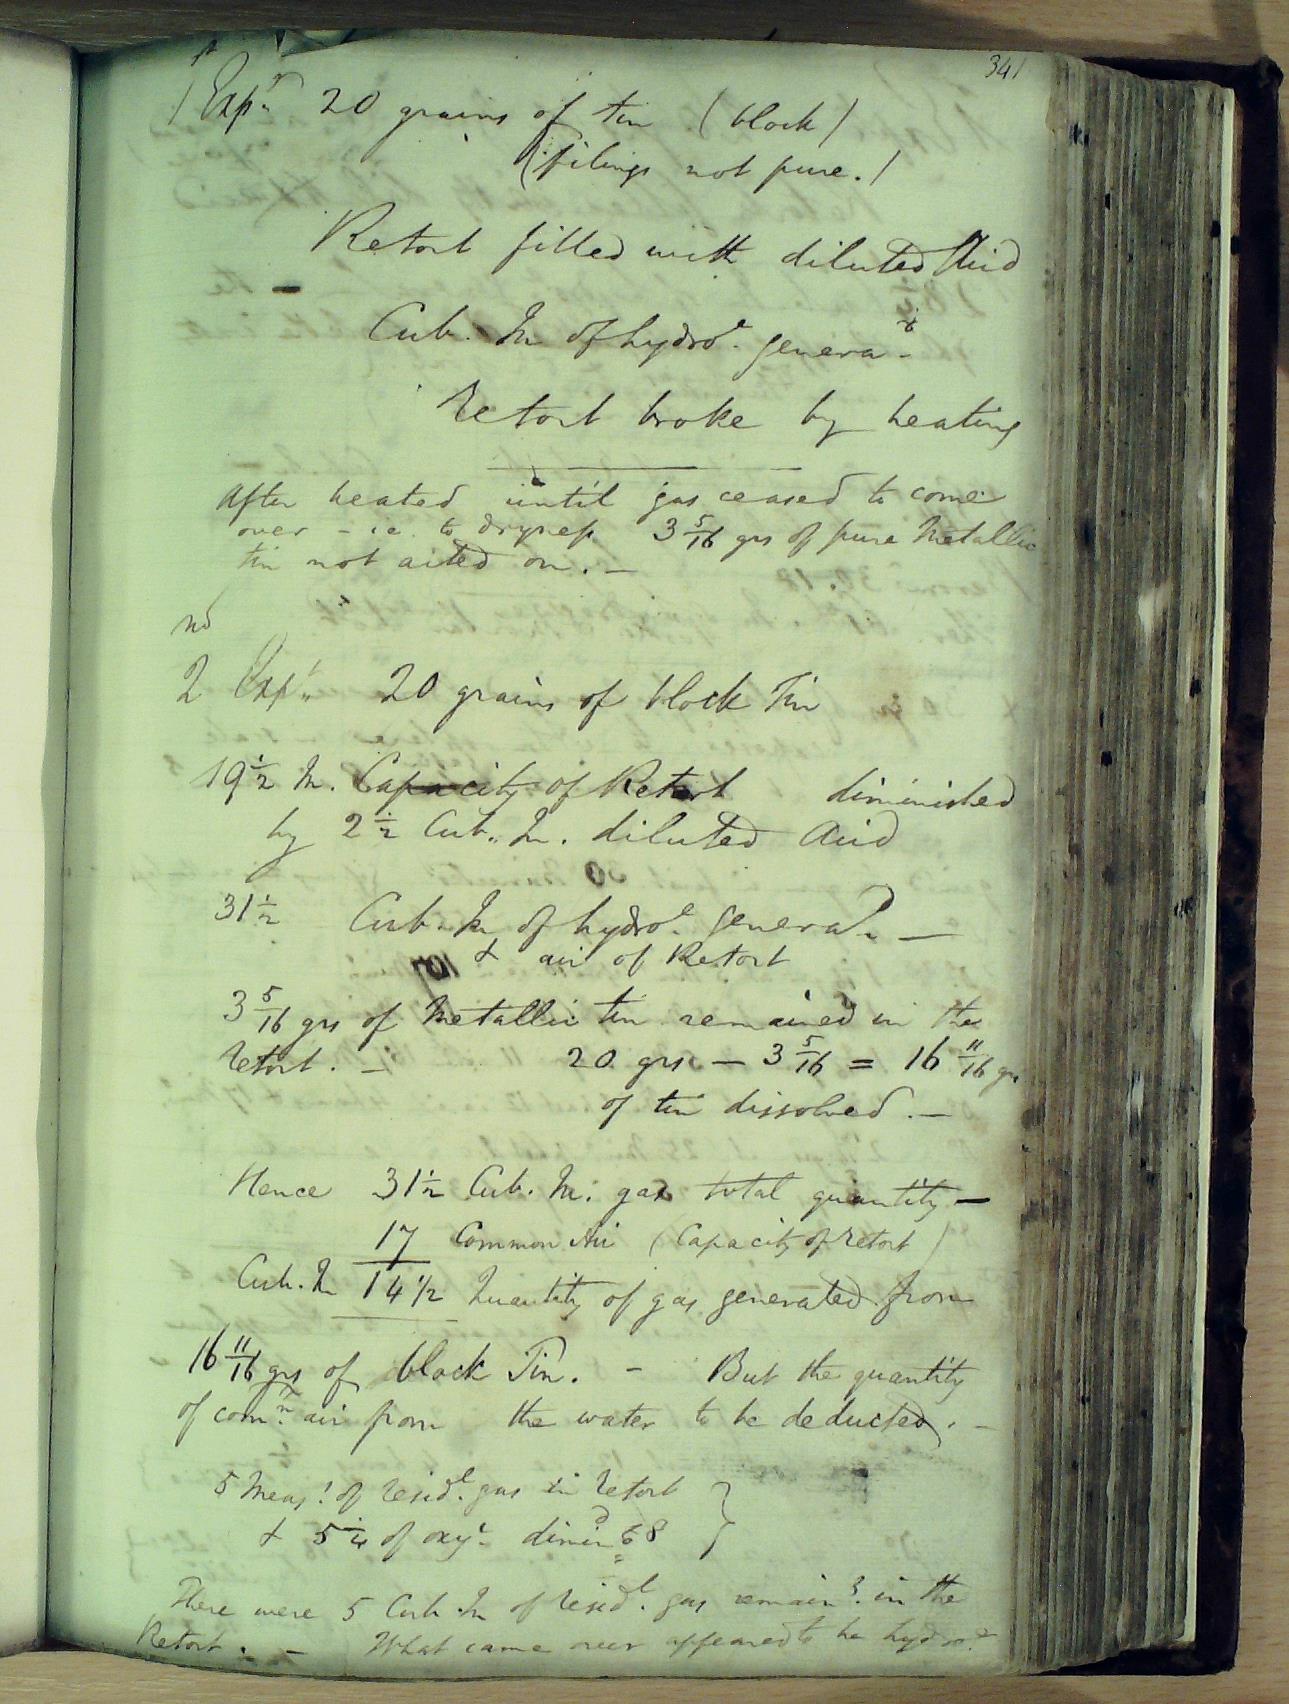 341
1st Expt. 20 grains of tin (block)
(filings not pure.)
Retort filled with diluted Acid
Cub. In of hydroe. generad.
Retort broke by heating
After heated until gas ceased to come
over - ie. to dryness 3 5/16 grs of pure Metallic
tin not acted on. -
nd
2 Expt. 20 grains of block Tin
19 1/2 In. Capacity of Retort diminished
by 2 1/2 Cub. In. diluted Acid
31 1/2 Cub. In of hydroe. generad. -
& air of Retort
3 5/16 grs of Metallic tin remained in the
retort. - 20 grs - 3 5/16 = 16 11/16 grs
of tin dissolved. -
Hence 31 1/2 Cub. In. gas total quantity -
17 Common Air (Capacity of retort)
Cub. In 14 1/2 Quantity of gas generated from
16 11/16 grs of block Tin. - But the quantity
of comn. air from the water to be deducted. -
5 Meass. of residl. gas in retort
& 5 1/4 of oxye. dimind. 68
There were 5 Cub. In of residl. gas remaing. in the
Retort. - What came over appeared to be hydroe.